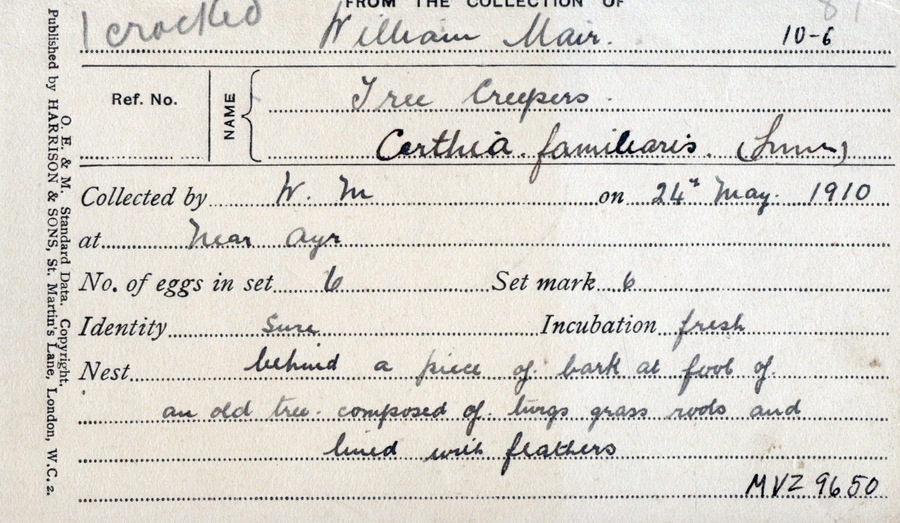 FROM THE COLLECTION OF
1 crocked
William Mair.
10-6
81
Ref. No.
NAME
Tree Creepers.
Certhia familiaris. (Linn)
Collected by W. M on 24th May. 1910
at Near Ayr
No. of eggs in set 6 Set mark 6
Identity Sure Incubation fresh
Nest behind a piece of bark at foot of
an old tree. composed of twigs grass roots and
lined with feathers
MVZ 9650
O. E. & M. Standard Data. Copyright.
Published by HARRISON & SONS, St. Martin's Lane, London, W.C.2.